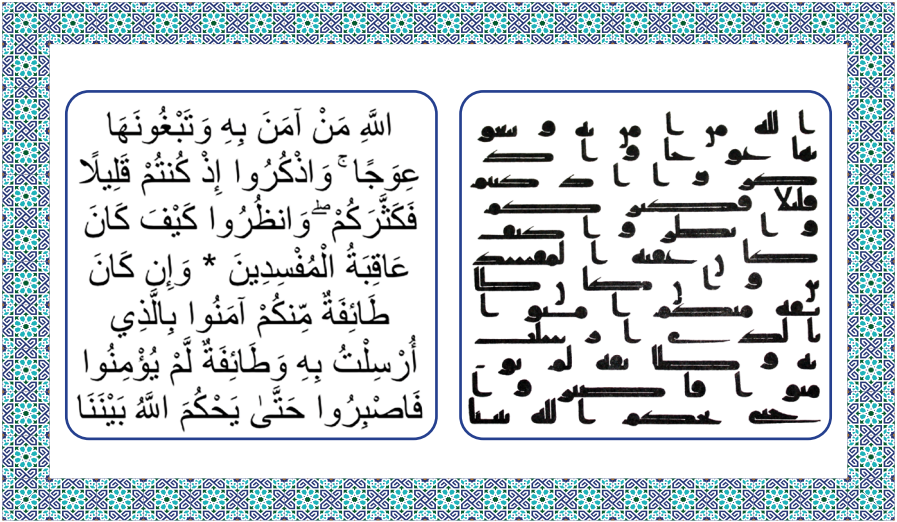 الله من امن به وتبغو
نها عوجا واذ
كروا اذ كنتم
قليلا فكثركم
وانظروا كيف
كان عقبه المفسد
ين وان كان طا
ئفه منكم امنوا
بالذي ارسلت
به وطائفه لم يو
منوا فاصبروا
حتى يحكم الله بيننا
اللَّهِ مَنْ آمَنَ بِهِ وَتَبْغُونَهَا
عِوَجًا ۚ وَاذْكُرُوا إِذْ كُنتُمْ قَلِيلًا
فَكَثَّرَكُمْ ۖ وَانظُرُوا كَيْفَ كَانَ
عَاقِبَةُ الْمُفْسِدِينَ * وَإِن كَانَ
طَائِفَةٌ مِّنكُمْ آمَنُوا بِالَّذِي
أُرْسِلْتُ بِهِ وَطَائِفَةٌ لَّمْ يُؤْمِنُوا
فَاصْبِرُوا حَتَّىٰ يَحْكُمَ اللَّهُ بَيْنَنَا